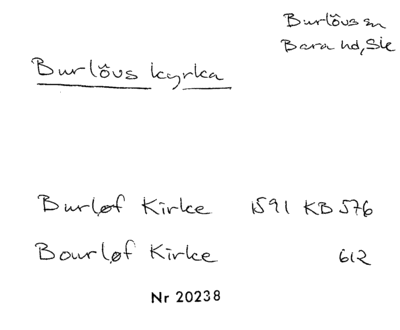 Burlövs sn
Bara hd, Skå
Burlövs kyrka
Burløf Kirke 1591 KB 576
Bourløf Kirke 612
Nr 20238